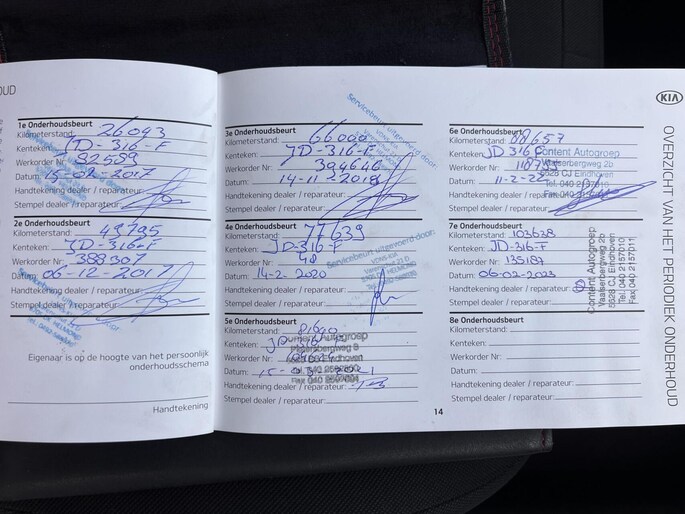 OUD
1e Onderhoudsbeurt
Kilometerstand: 26093
Kenteken: JD-316-F
Werkorder Nr: 82589
Datum: 15-02-2017
Handtekening dealer / reparateur:
Stempel dealer / reparateur:
2e Onderhoudsbeurt
Kilometerstand: 43795
Kenteken: JD-316-F
Werkorder Nr: 388307
Datum: 06-12-2017
Handtekening dealer / reparateur:
Stempel dealer / reparateur:
Eigenaar is op de hoogte van het persoonlijk
onderhoudsschema
Handtekening
3e Onderhoudsbeurt
Kilometerstand: 66000
Kenteken: JD-316-F
Werkorder Nr: 394646
Datum: 14-11-2018
Handtekening dealer / reparateur:
Stempel dealer / reparateur:
Servicebeurt uitgevoerd door:
4e Onderhoudsbeurt
Kilometerstand: 77639
Kenteken: JD-316-F
Werkorder Nr: 48
Datum: 14-2-2020
Handtekening dealer / reparateur:
Stempel dealer / reparateur:
Servicebeurt uitgevoerd door:
5e Onderhoudsbeurt
Kilometerstand:
Kenteken:
Werkorder Nr:
Datum: 15-
Handtekening dealer / reparateur:
Stempel dealer / reparateur:
Content Autogroep
Eindhoven
14
6e Onderhoudsbeurt
Kilometerstand: 88657
Kenteken: JD 316 F
Werkorder Nr:
Datum: 11-2-22
Handtekening dealer / reparateur:
Stempel dealer / reparateur:
Content Autogroep
Vaalserbergweg 2b
5628 CJ Eindhoven
Tel. 040 2157010
Fax 040
7e Onderhoudsbeurt
Kilometerstand: 103628
Kenteken: JD-316-F
Werkorder Nr: 135187
Datum: 06-02-2023
Handtekening dealer / reparateur:
Stempel dealer / reparateur:
Content Autogroep
Vaalserbergweg 2b
5628 CJ Eindhoven
Tel. 040 2157010
Fax. 040 2157011
8e Onderhoudsbeurt
Kilometerstand:
Kenteken:
Werkorder Nr:
Datum:
Handtekening dealer / reparateur:
Stempel dealer / reparateur:
KIA
OVERZICHT VAN HET PERIODIEK ONDERHOUD